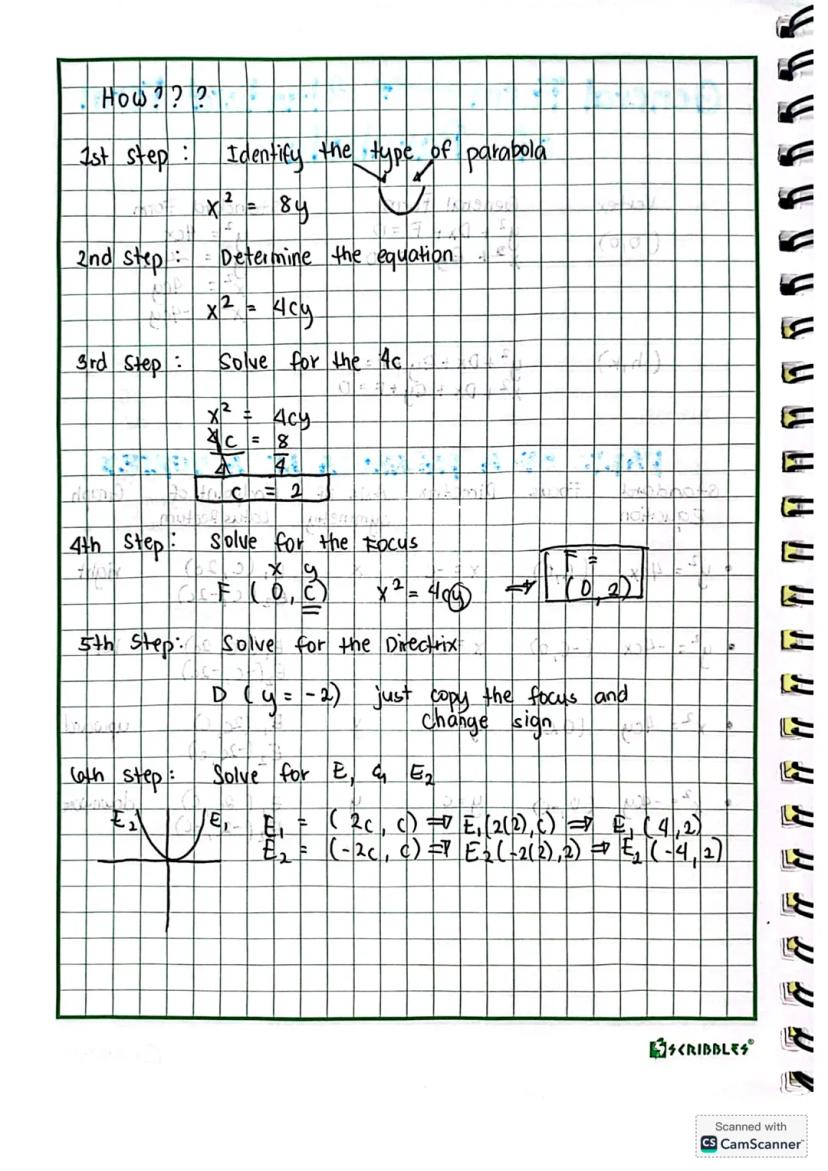 How???
1st step : Identify the type of parabola
x² = 8y
2nd step : Determine the equation
x² = 4cy
3rd step : Solve for the 4c
x² = 4cy
4c = 8
4 4
c = 2
4th step : Solve for the Focus
x y
F (0, c) x² = 4cy ⇒ F = (0, 2)
5th step: Solve for the Directrix
D (y = -2) just copy the focus and
change sign
6th step : Solve for E₁ & E₂
E₂ E₁ E₁ = (2c, c) ⇒ E₁(2(2), c) ⇒ E₁(4,2)
E₂ = (-2c, c) ⇒ E₂(-2(2),2) ⇒ E₂(-4,2)
SCRIBBLES®
Scanned with
CS CamScanner